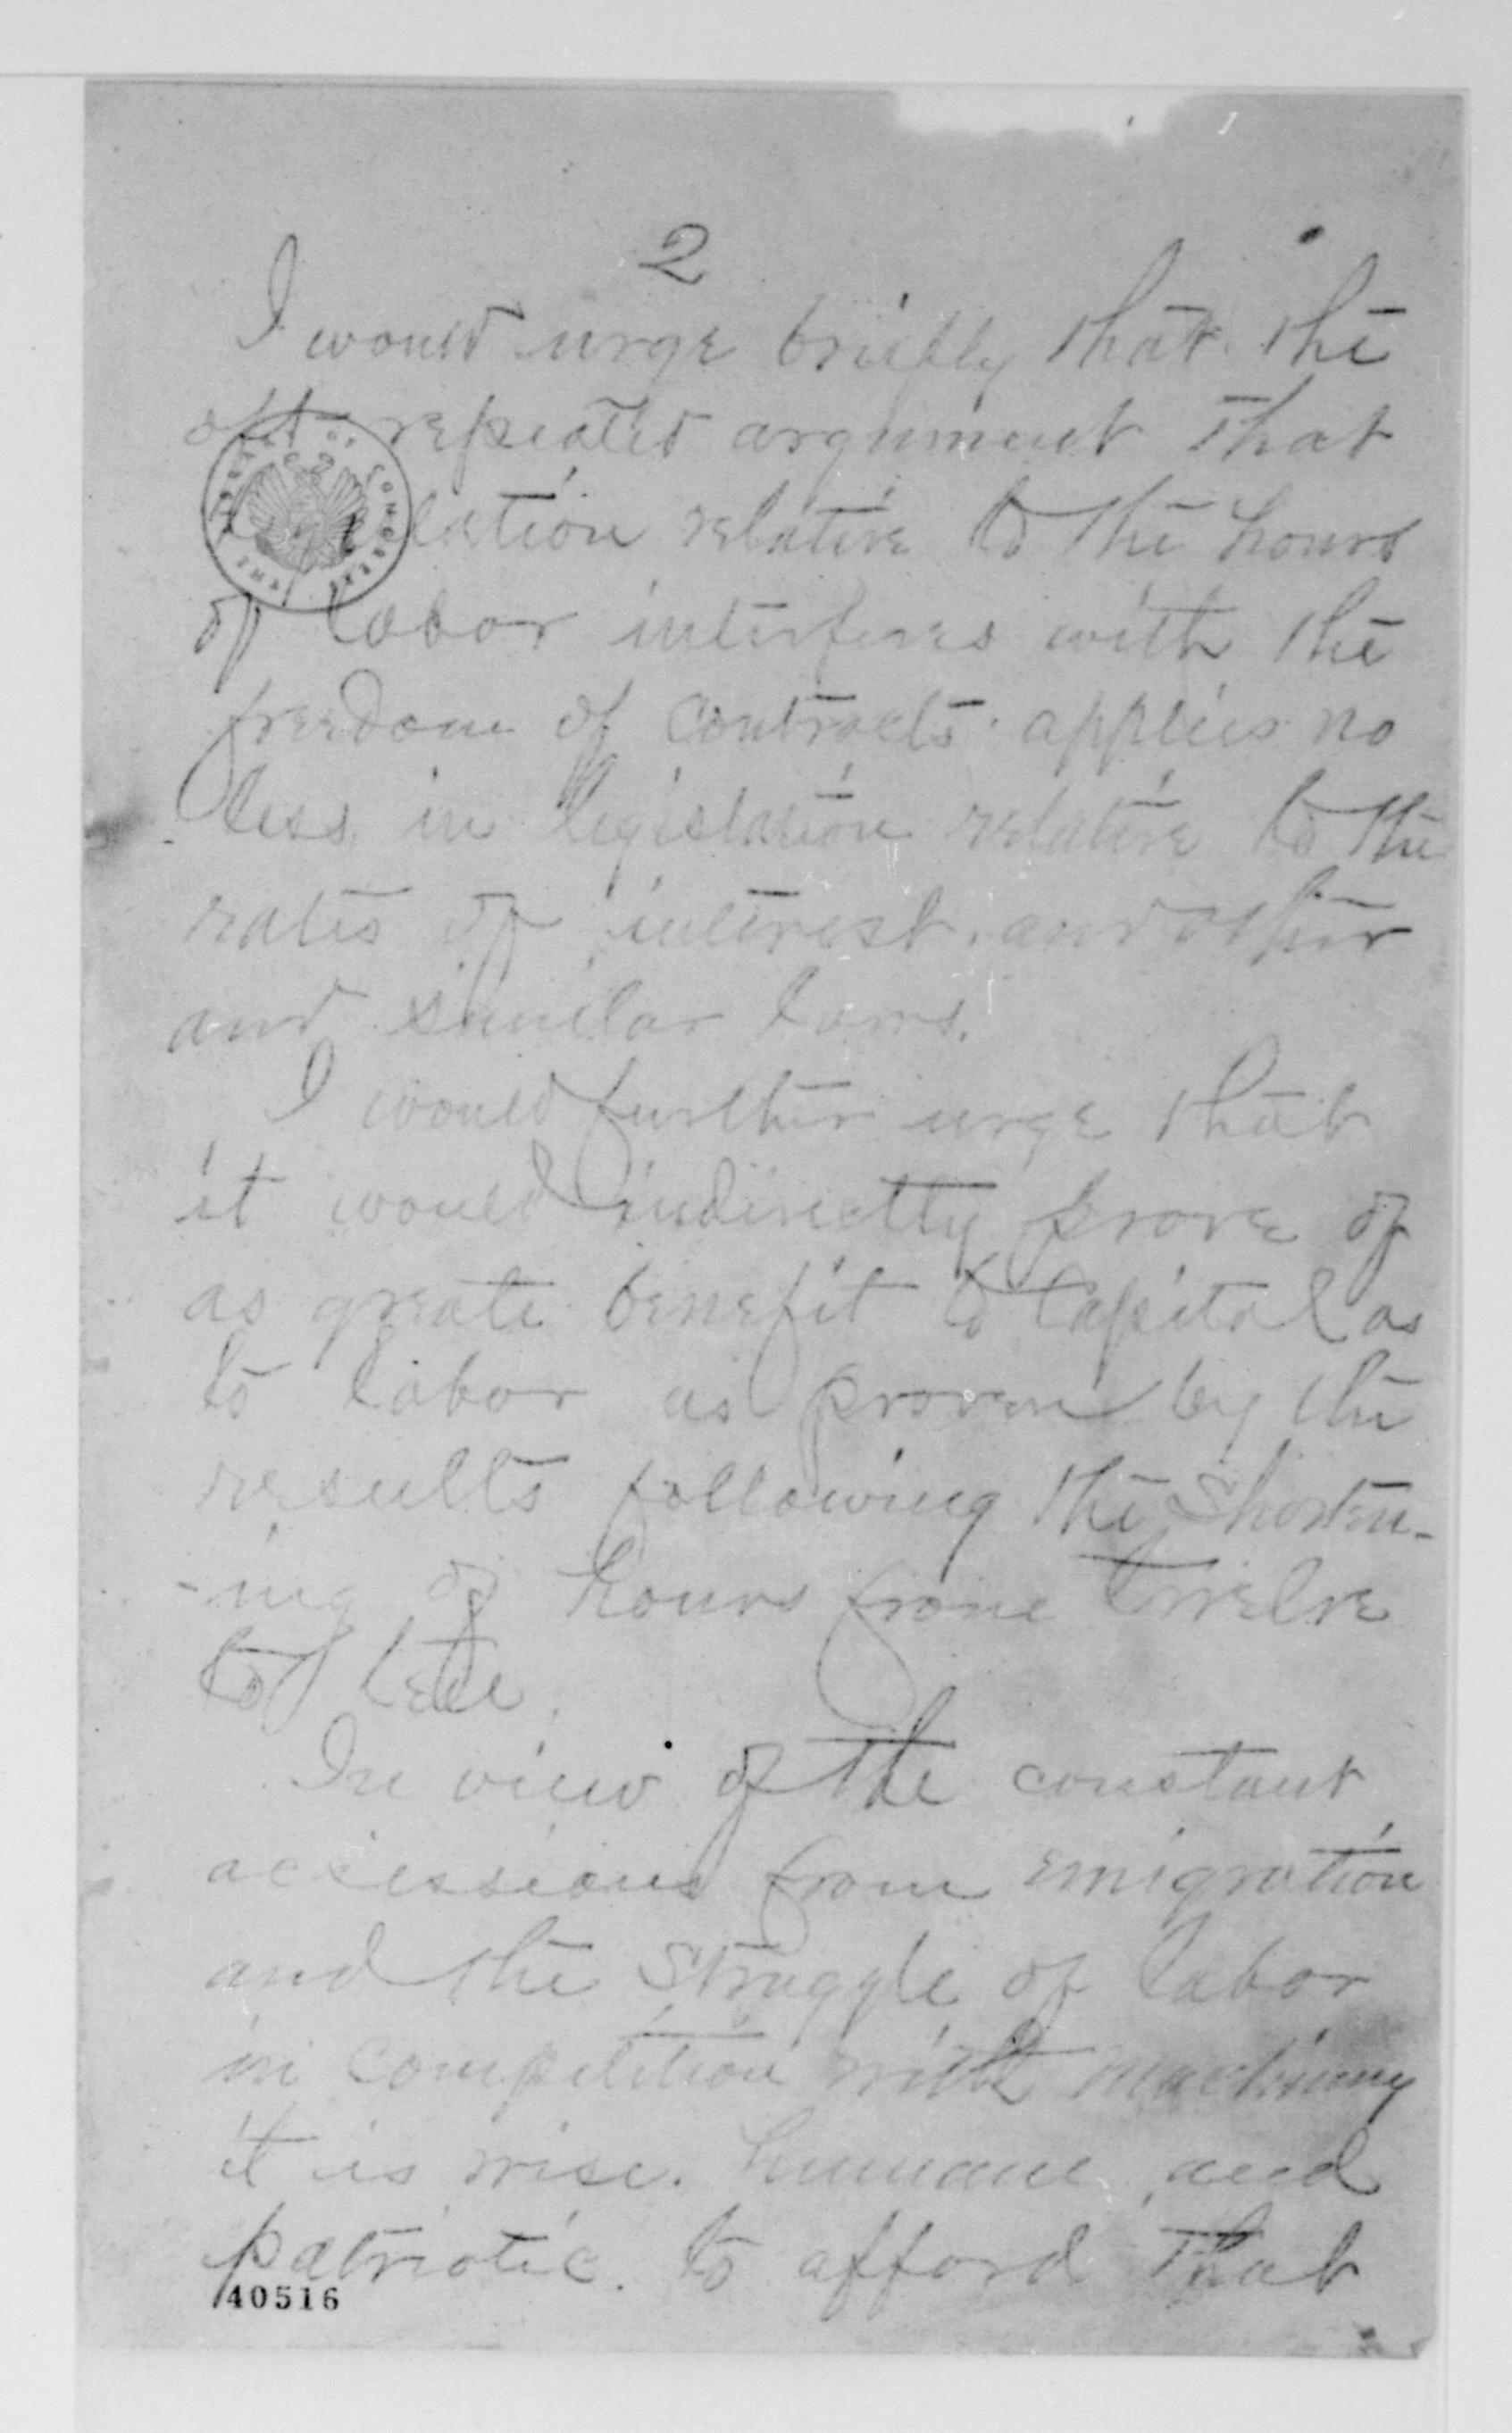 2
I would urge briefly that the
oft repeated argument that
legislation relative to the hours
of labor interferes with the
freedom of contracts applies no
less in legislation relative to the
rates of interest. and other
and similar laws.
I would further urge that
it would indirectly prove of
as greate benefit to Capital as
to labor as proven by the
results following the Shorten-
-ing of hours from twelve
to ten.
In view of the constant
accessions from emigration
and the Struggle of labor
in competition with machinery
it is wise. humane, and
patriotic. to afford that
40516
THE LIBRARY OF CONGRESS